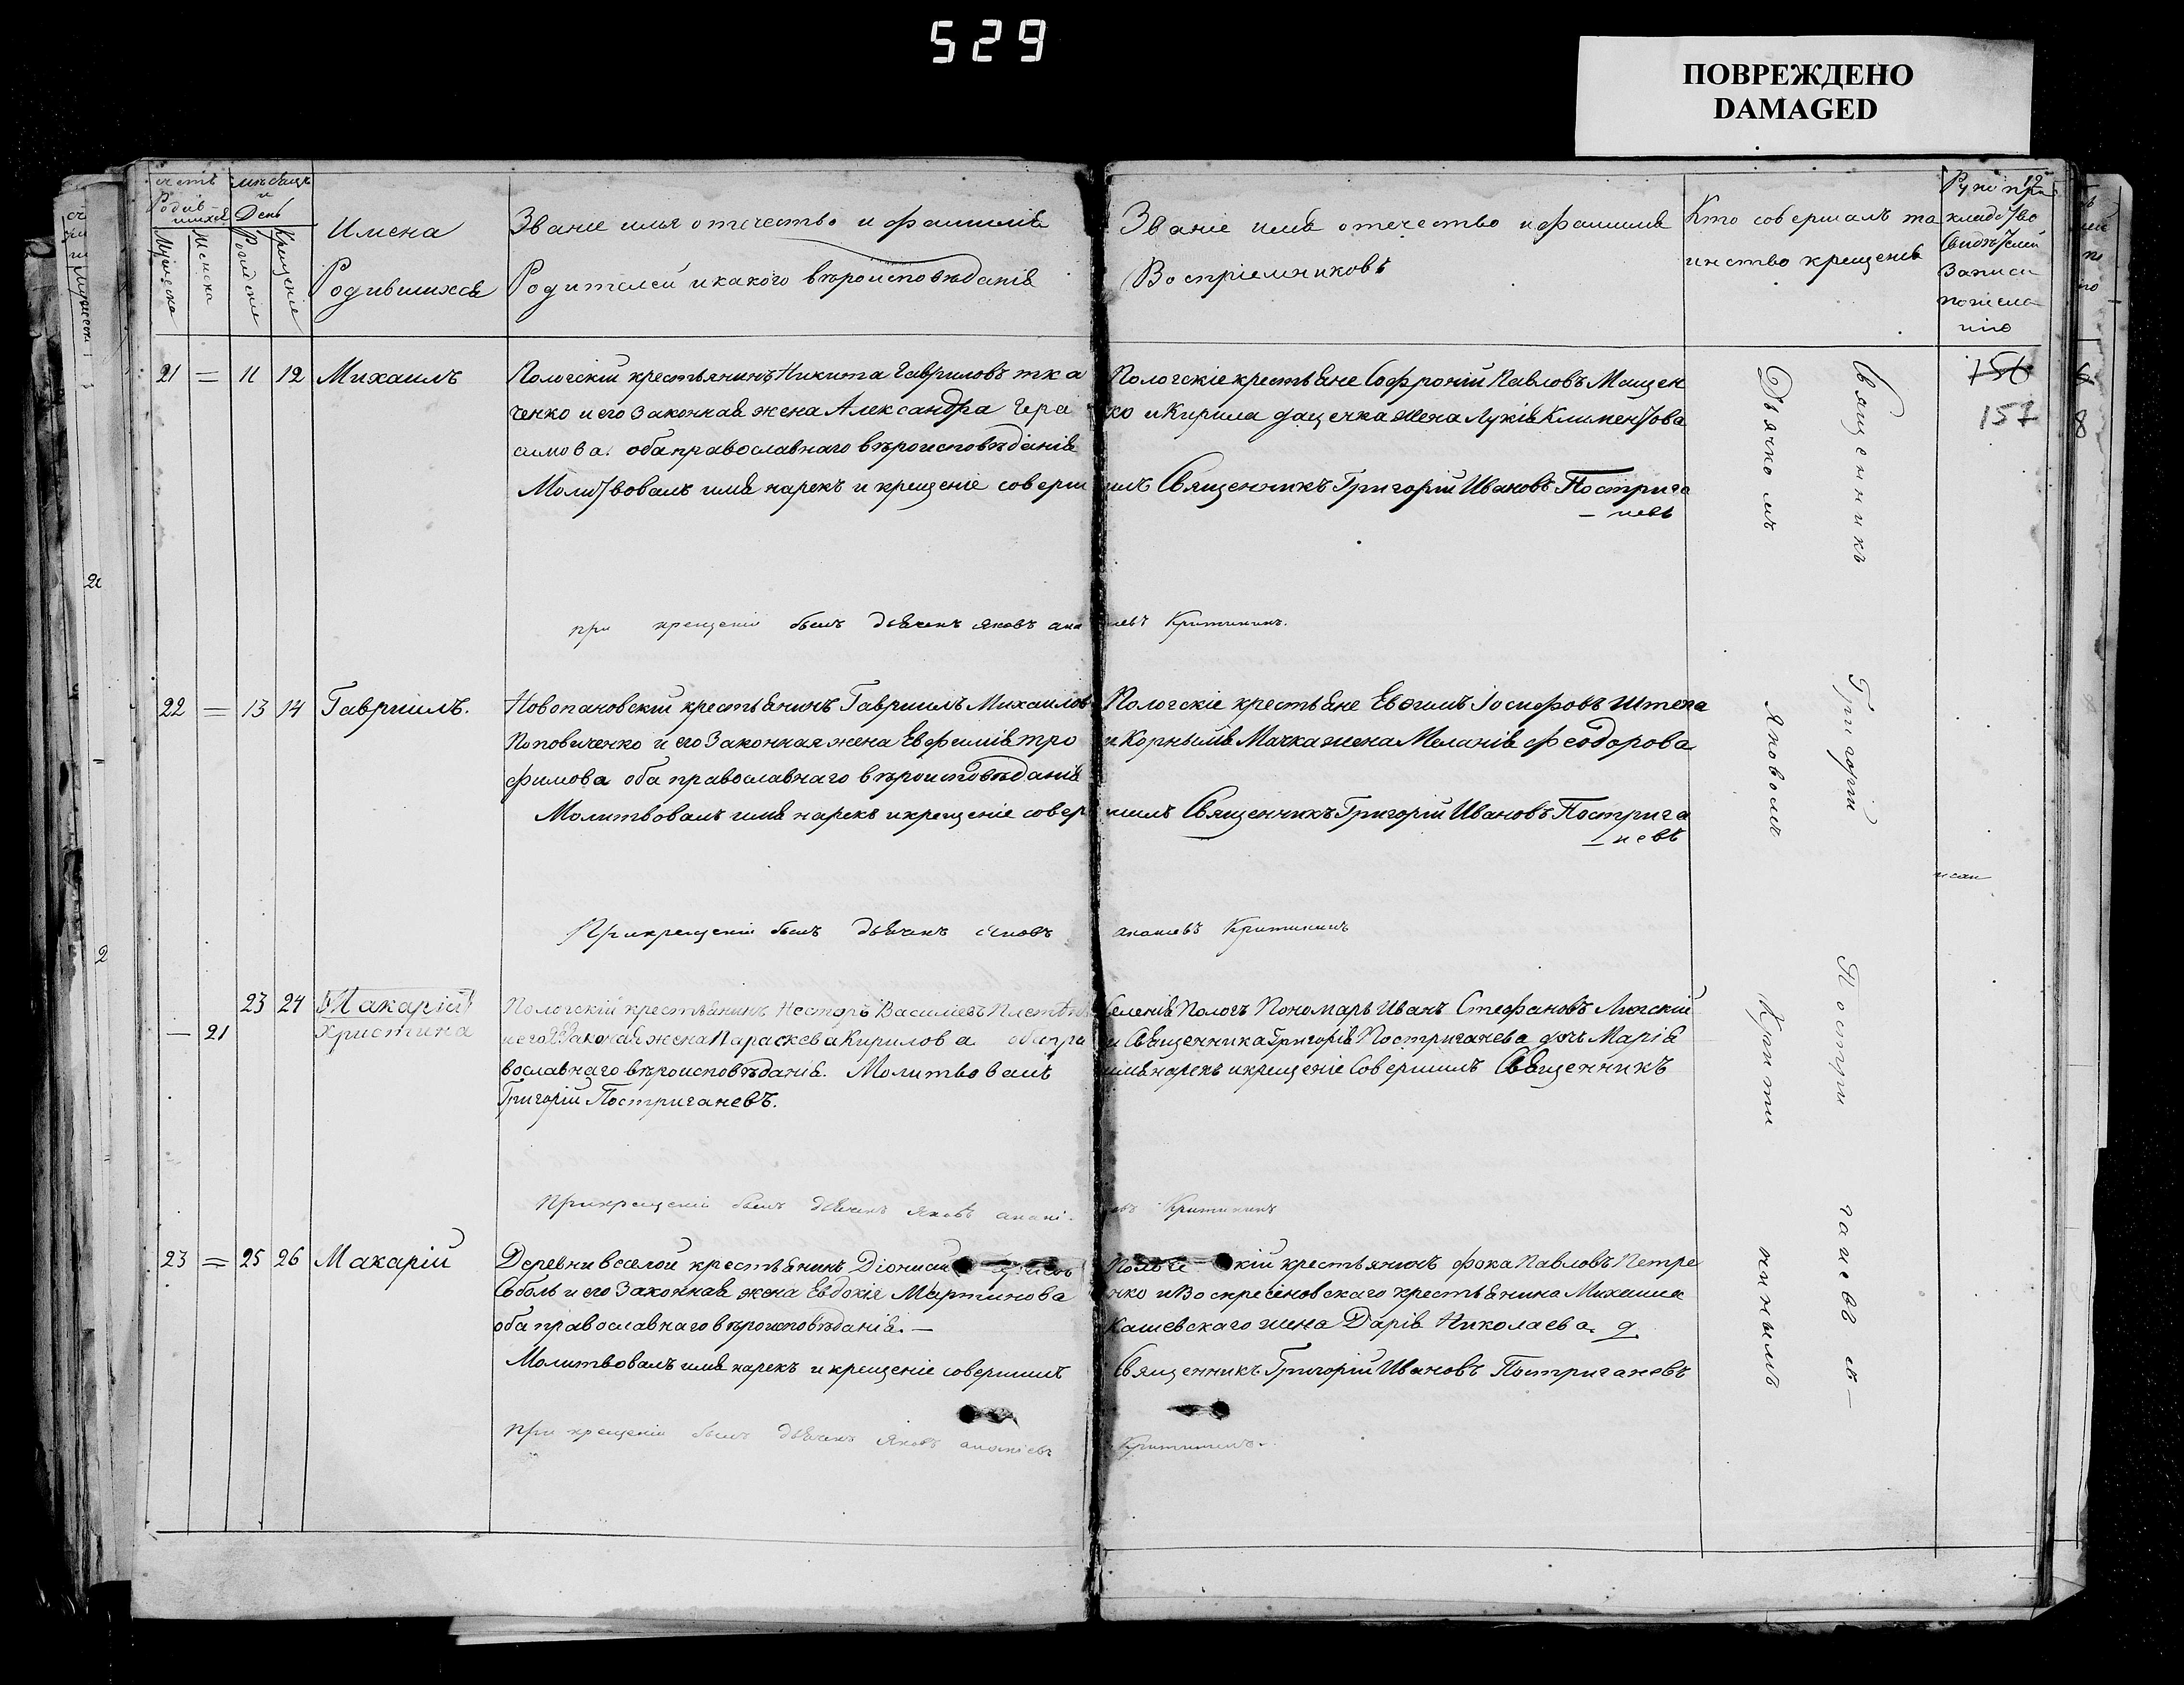 529
ПОВРЕЖДЕНО
DAMAGED
счетъ Родив-шихся
мѣсяцъ и День
Мужеска
Женска
Рожденіе
Крещеніе
Имена
Родившихся
Званіе имя отечество и фамилія
Родителей и какого вѣроисповѣданія
Званіе имя отечество и фамилія
Воспріемниковъ
Кто совершалъ та
инство крещенія
записи
21 = 11 12 Михаилъ
Пологскій крестьянинъ Никита Гавриловъ тка
ченко и его законная жена Александра Гера
симова. оба православнаго вѣроисповѣданія
Молитвовалъ имя нарекъ и крещеніе соверш
Пологскіе крестьяне Софроній Павловъ Мащен
ко и Кирила дацечка жена Лукія Климентова
илъ Священникъ Григорій Ивановъ Пострига
невъ
156
157
при крещеніи былъ дьячекъ Яковъ ана
іевъ Критининъ.
22 = 13 14 Гавриилъ.
Новопановскій крестьянинъ Гавриилъ Михаилов
Поповиченко и его законная жена Евфимія тро
фимова оба православнаго вѣроисповѣданія
Молитвовалъ имя нарекъ и крещеніе совер
Пологскіе крестьяне Евфимъ Іосифовъ Штепа
и Корнилія Мачка жена Меланія Феодорова
шилъ Священникъ Григорій Ивановъ Пострига
невъ
При крещеніи былъ дьячекъ Яковъ
ананіевъ Критининъ
23 24 Макарій
— 21 Христина
Пологскій крестьянинъ Несторъ Василіевъ
и его законая жена Параскева Кирилова оба пра
вославнаго вѣроисповѣданія. Молитвовалъ
Григорій Постриганевъ.
Селенія Пологъ Пономарь Иванъ Стефановъ Лигскій
и Священника Григорія Постриганева дочь Марія
имя нарекъ и крещеніе Совершилъ Священникъ
При крещеніи былъ дьячекъ Яковъ анані
евъ Критининъ
23 = 25 26 Макарій
Деревни веселой крестьянинъ Діонисій
Соболь и его законная жена Евдокія Мартинова
оба православнаго вѣроисповѣданія.—
Молитвовалъ имя нарекъ и крещеніе совершилъ
кій крестьянинъ фока Павловъ Петре
нко и Воскресеновскаго крестьянина Михаила
Кашевскаго жена Дарія Николаева
Священникъ Григорій Ивановъ Постриганевъ
при крещеніи былъ дьячекъ Яковъ ананіевъ
Критининъ.
Священникъ Григорій Постриганевъ съ—
Дьячкомъ Яковомъ Крити нинымъ